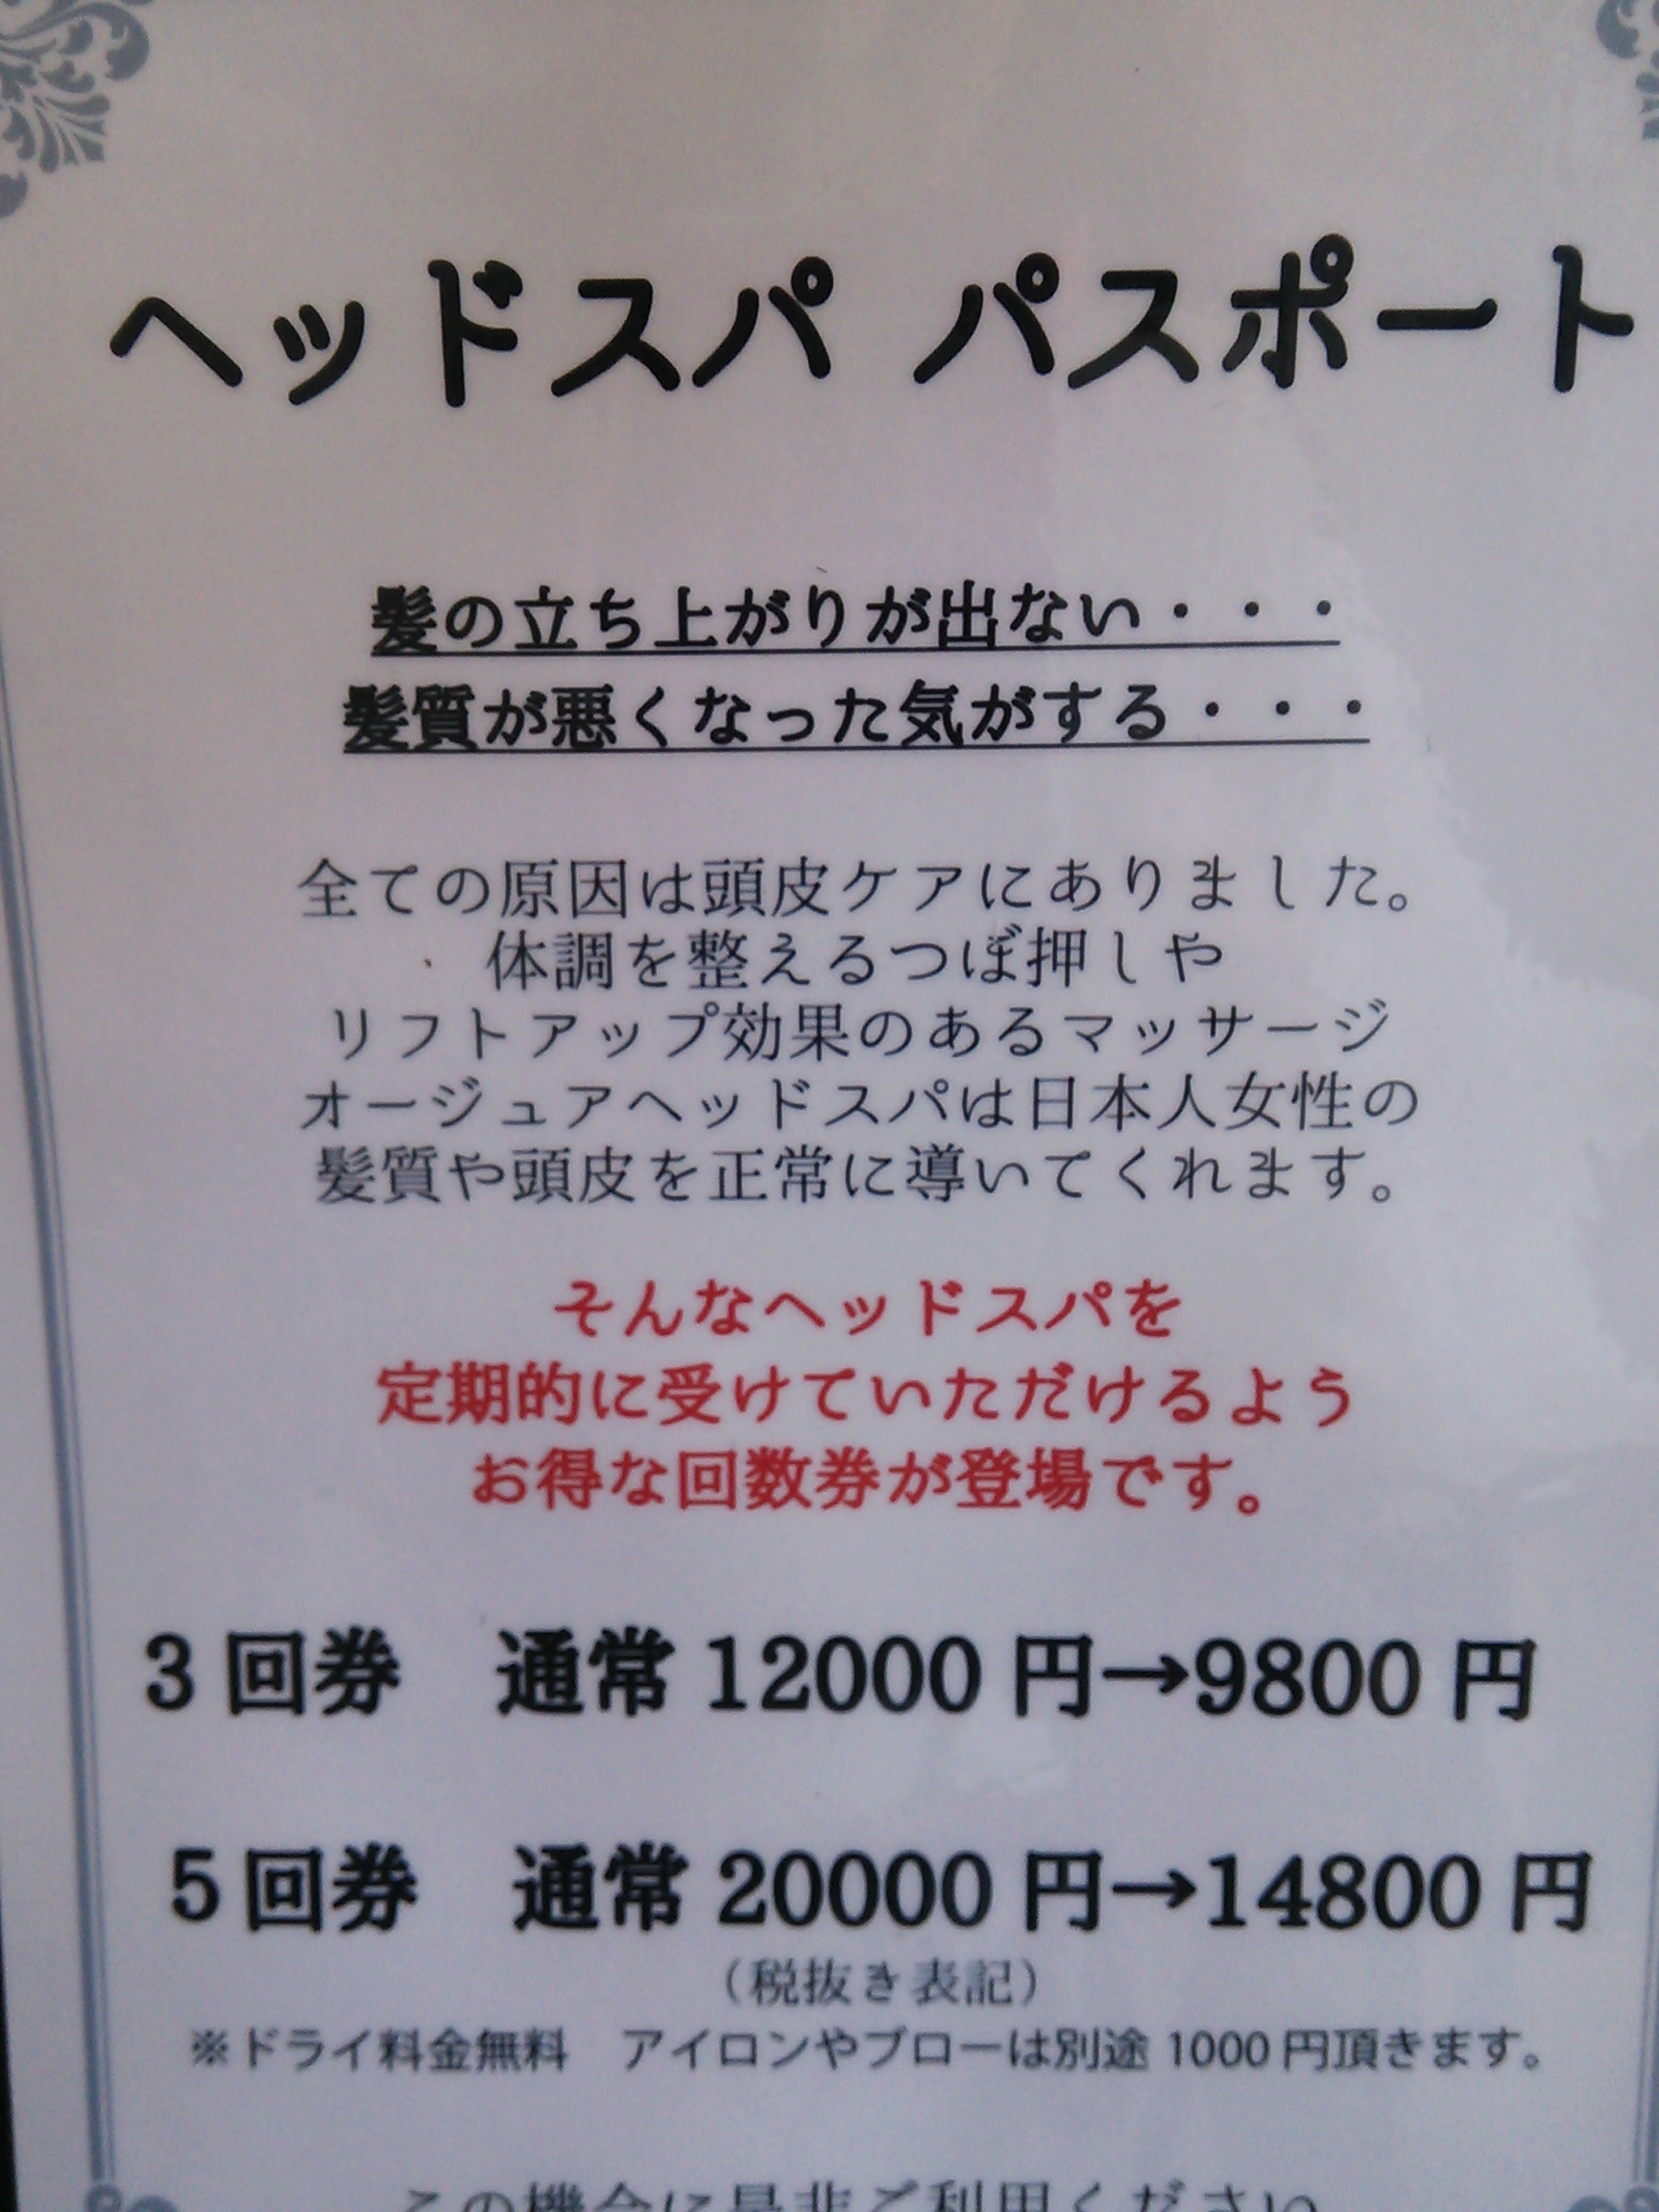 ヘッドスパ パスポート
髪の立ち上がりが出ない・・・
髪質が悪くなった気がする・・・
全ての原因は頭皮ケアにありました。
体調を整えるつぼ押しや
リフトアップ効果のあるマッサージ
オージュアヘッドスパは日本人女性の
髪質や頭皮を正常に導いてくれます。
そんなヘッドスパを
定期的に受けていただけるよう
お得な回数券が登場です。
3回券 通常12000円→9800円
5回券 通常20000円→14800円
（税抜き表記）
※ドライ料金無料 アイロンやブローは別途1000円頂きます。
この機会に是非ご利用ください